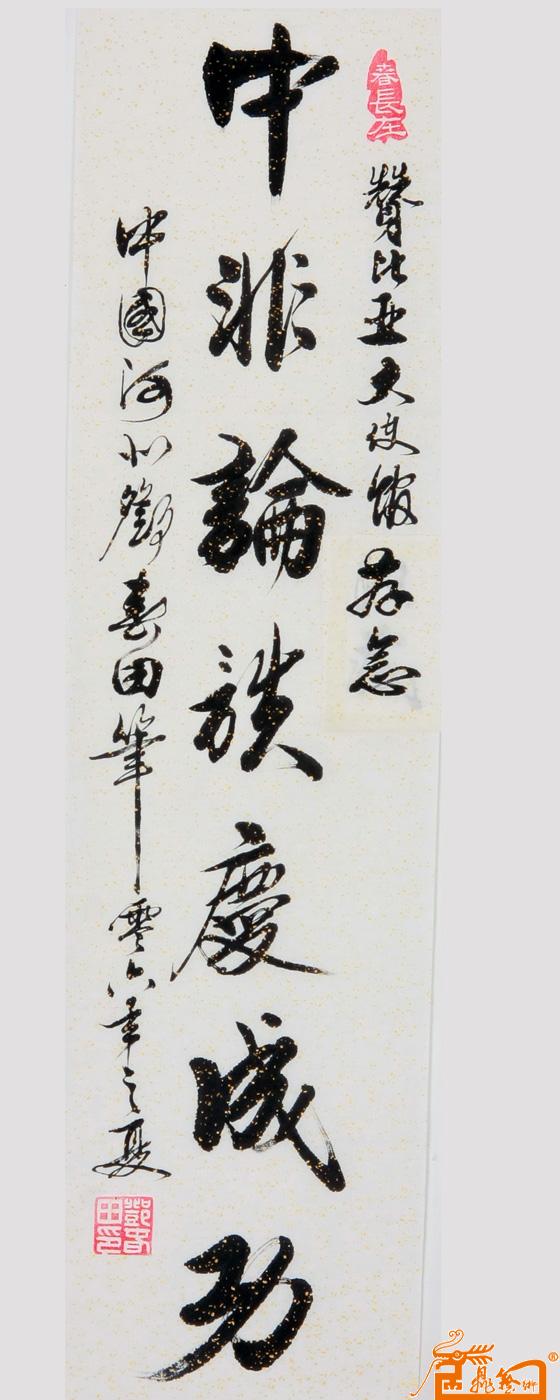 春長在
贊比亞大使館 存念
中非論慶成功
中國河北鄧春田筆零六年之夏
鄧春田印